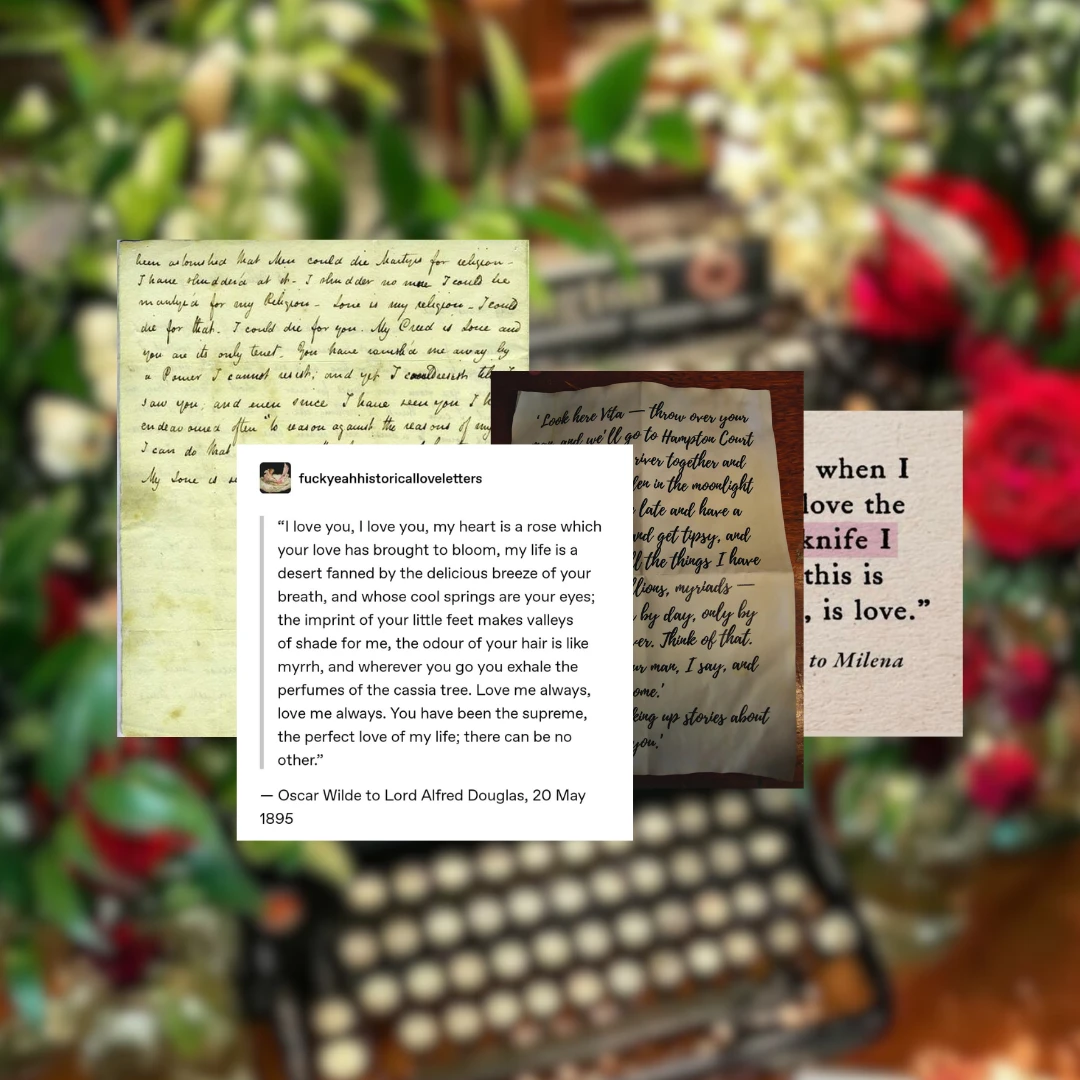 been astonished that Men could die Martyrs for religion -
I have shudder'd at it - I shudder no more I could be
martyr'd for my Religion - Love is my religion - I could
die for that - I could die for you. My Creed is Love and
you are its only tenet - You have ravish'd me away by
a Power I cannot resist; and yet I could resist till I
saw you; and even since I have seen you I h
endeavoured often "to reason against the reasons of my
I can do that
My Love is
'Look here Vita — throw over your
and we'll go to Hampton Court
river together and
en in the moonlight
late and have a
nd get tipsy, and
ll the things I have
llions, myriads —
by day, only by
er. Think of that.
ur man, I say, and
ome.'
king up stories about
you.'
when I
love the
knife I
this is
, is love.”
to Milena
fuckyeahhistoricalloveletters
“I love you, I love you, my heart is a rose which
your love has brought to bloom, my life is a
desert fanned by the delicious breeze of your
breath, and whose cool springs are your eyes;
the imprint of your little feet makes valleys
of shade for me, the odour of your hair is like
myrrh, and wherever you go you exhale the
perfumes of the cassia tree. Love me always,
love me always. You have been the supreme,
the perfect love of my life; there can be no
other.”
— Oscar Wilde to Lord Alfred Douglas, 20 May
1895